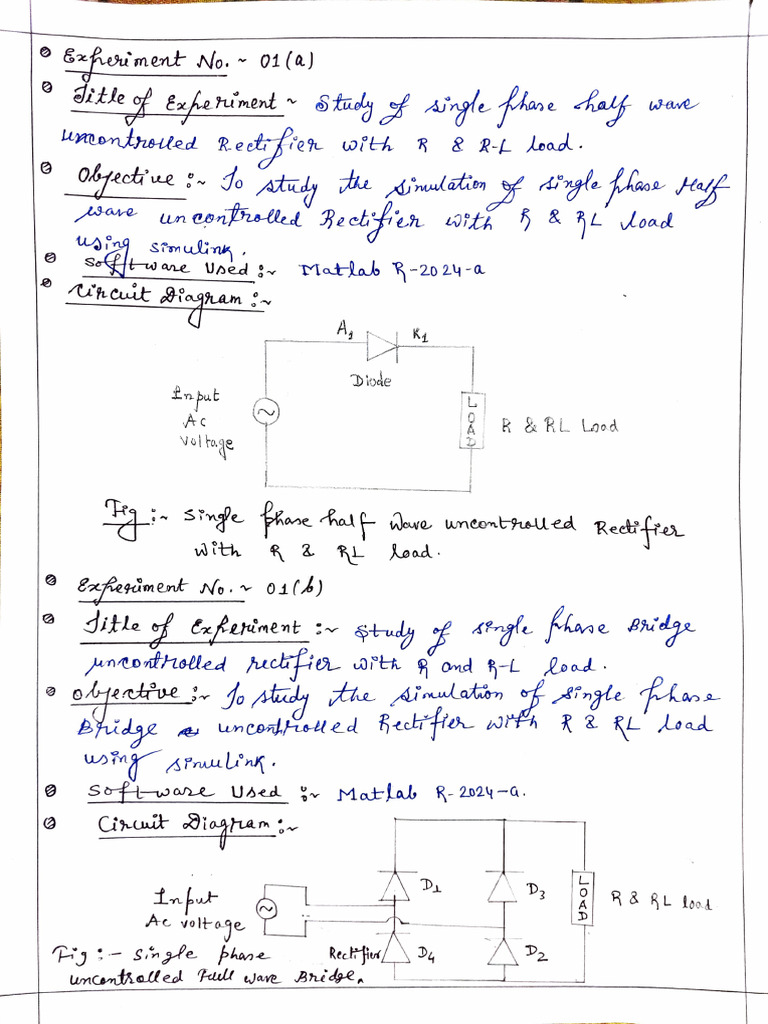 Experiment No. ~ 01(a)
Title of Experiment ~ Study of single phase half wave
uncontrolled Rectifier with R & R-L load.
Objective :~ To study the simulation of single phase Half
wave uncontrolled Rectifier with R & RL load
using simulink.
Software Used :~ Matlab R-2024-a
Circuit Diagram :~
A1 K1
Diode
Input
Ac
voltage
LOAD
R & RL Load
Fig :~ Single phase half wave uncontrolled Rectifier
with R & RL load.
Experiment No. ~ 01(b)
Title of Experiment :~ Study of single phase Bridge
uncontrolled rectifier with R and R-L load.
Objective :~ To study the simulation of single phase
Bridge uncontrolled Rectifier with R & RL load
using simulink.
Software Used :~ Matlab R-2024-a.
Circuit Diagram :~
D1 D3
LOAD
R & RL load
Input
Ac voltage
D4 D2
Fig :- Single phase Rectifier
uncontrolled Full wave Bridge.